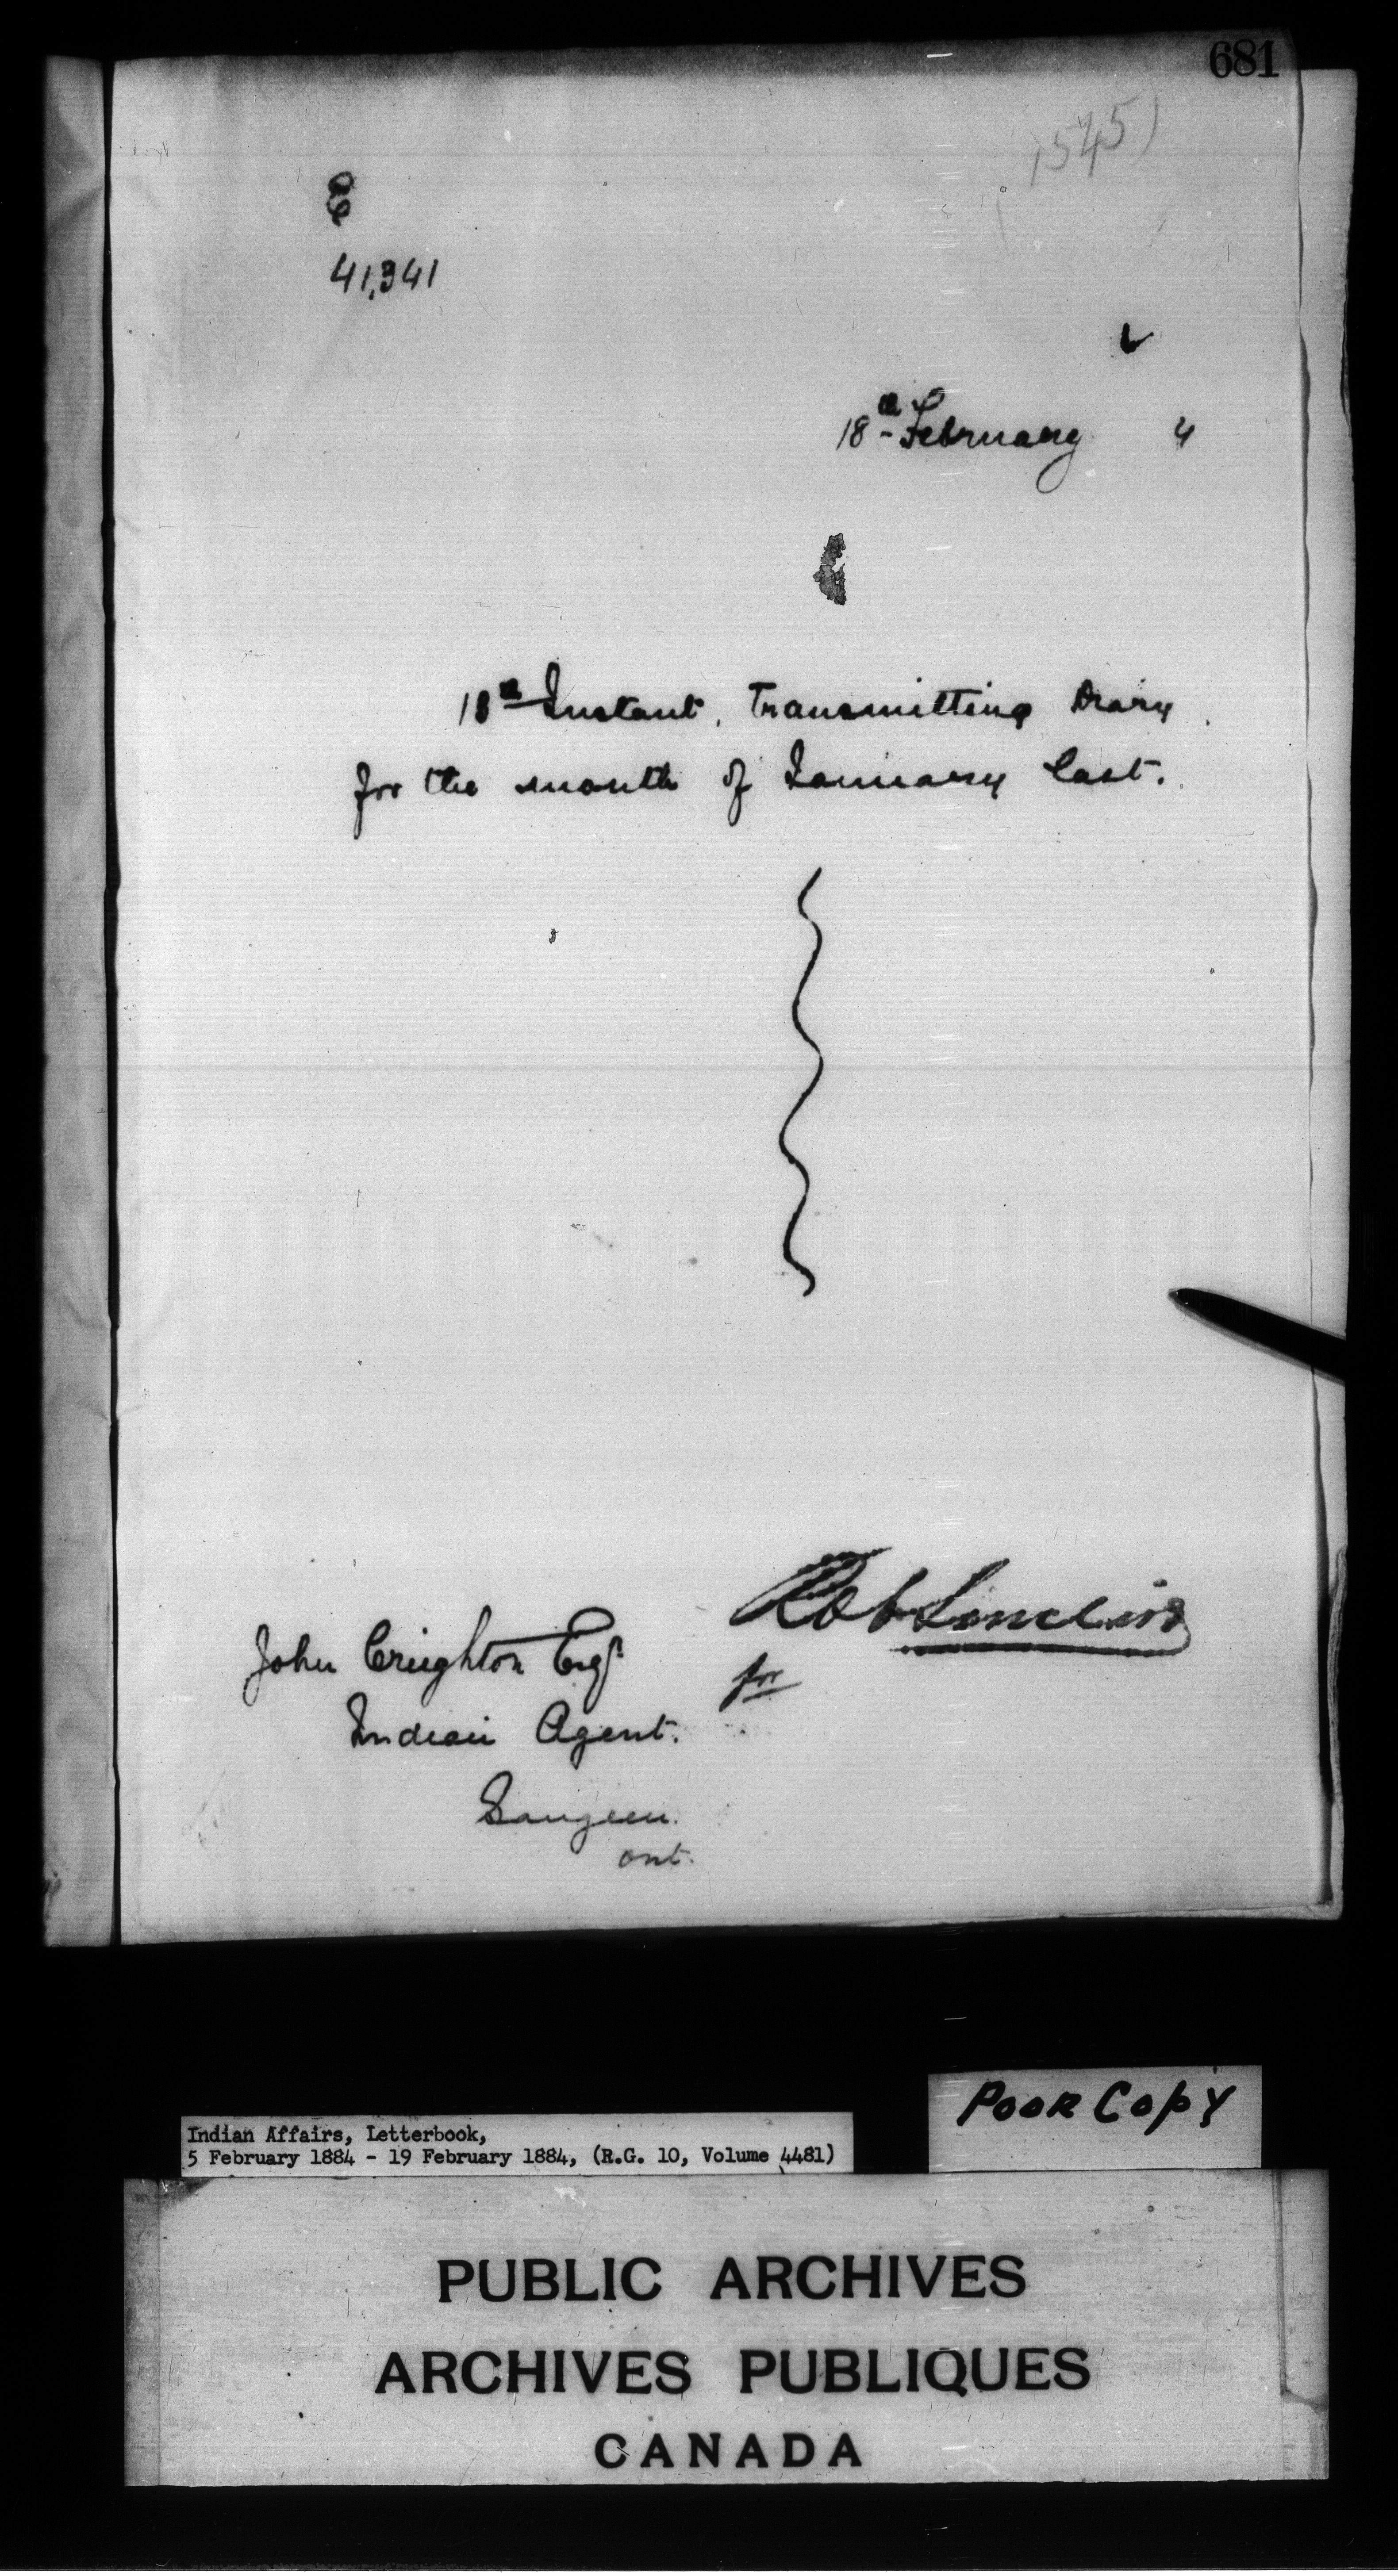 681
1545)
E
41,341
18th February 4
18th Instant, Transmitting Diary
for the month of January last.
Robt Sinclair
for
John Creighton Esqr
Indian Agent.
Saugeen.
Ont.
Poor Copy
Indian Affairs, Letterbook,
5 February 1884 - 19 February 1884, (R.G. 10, Volume 4481)
PUBLIC ARCHIVES
ARCHIVES PUBLIQUES
CANADA